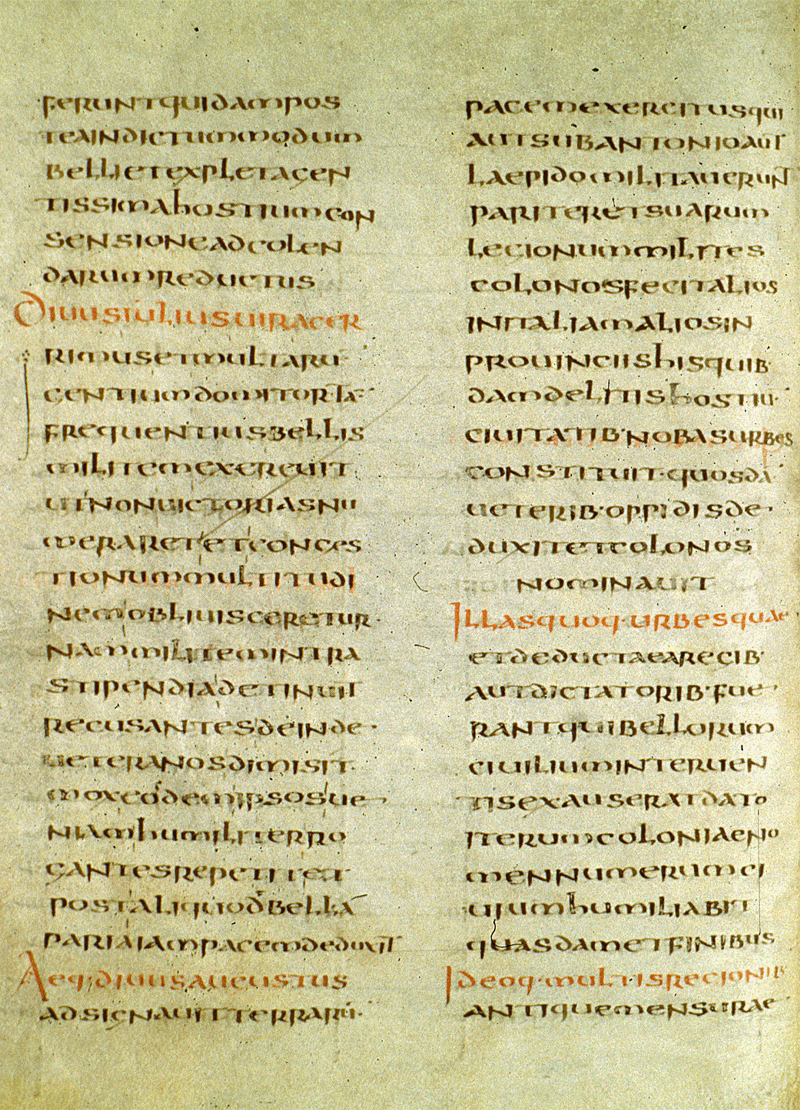 feruntquidampos
teaindictummodum
bellietexpletacen
tissimahostiumcon
sensioneadcolen
darumreductus
diuusiuliusuiracer
rimusetmultaru
gentiumdomitorta·
frequentiusbellis
militemexercuit
utnonuictoriasnu
meraretetconges
tionummultitudi
nemobliuisceretur·
nammilitemintra
stipendiadetinuit
recusantesdeinde·
ueteranosdimisit·
moxeodemipsosue
niamhumiliterro
gantesrepetitet
postaliquodbella
partaiampacemdeduxit
Aeq·diuusaugustus
adsignauitterrarū·
pacemexercitusqui
autsubantonioaut
laepidomilitauerunt
pariteretsuarum
legionummilites
colonosfecitalios
initaliamaliosin
prouinciishisquib·
damdelitishostiu·
ciuitatib·nobasurbes
constituit·quosdā
ueterib·oppidisde·
duxitetcolonos
nominauit
Illasquoq·urbesquae
etdeductaearegib·
autdictatorib·fue·
rantquibellorum
ciuiliuminteruen
tusexauseratdato
iterumcoloniaeno
mennumerumci
uiumhumiliabit
quasdametfinibus
Ideoq·multisregionib·
antiquemensurae